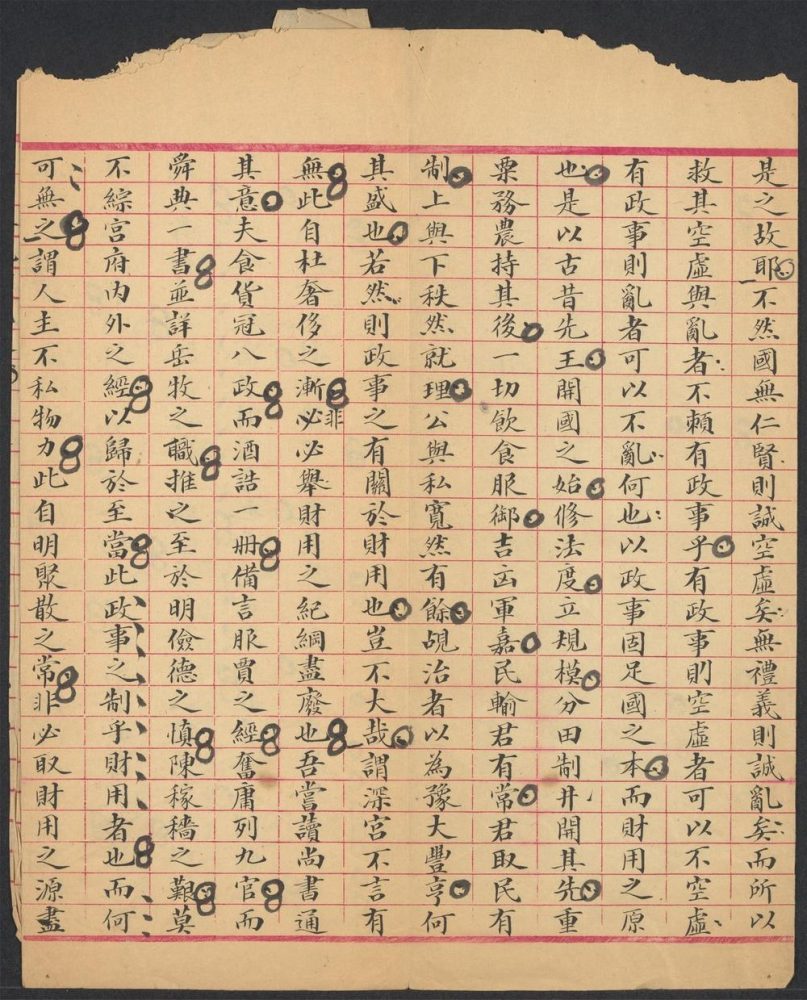 是之故耶不然國無仁賢則誠空虛矣無禮義則誠亂矣而所以
救其空虛與亂者不賴有政事乎有政事則空虛者可以不空虛
有政事則亂者可以不亂何也以政事固足國之本而財用之原
也是以古昔先王開國之始修法度立規模分田制井開其先重
粟務農持其後一切飲食服御吉凶軍嘉民輸君有常君取民有
制上與下秩然就理公與私寬然有餘覘治者以為豫大豐亨何
其盛也若然則政事之有關於財用也豈不大哉謂深宮不言有
無此自杜奢侈之漸必非必舉財用之紀綱盡廢也吾嘗讀尚書通
其意夫食貨冠八政而酒誥一冊備言服賈之經奮庸列九官而
舜典一書並詳岳牧之職推之至於明儉德之慎陳稼穡之艱莫
不綜宮府內外之經以歸於至當此政事之制乎財用者也而何
可無之謂人主不私物力此自明聚散之常非必取財用之源盡